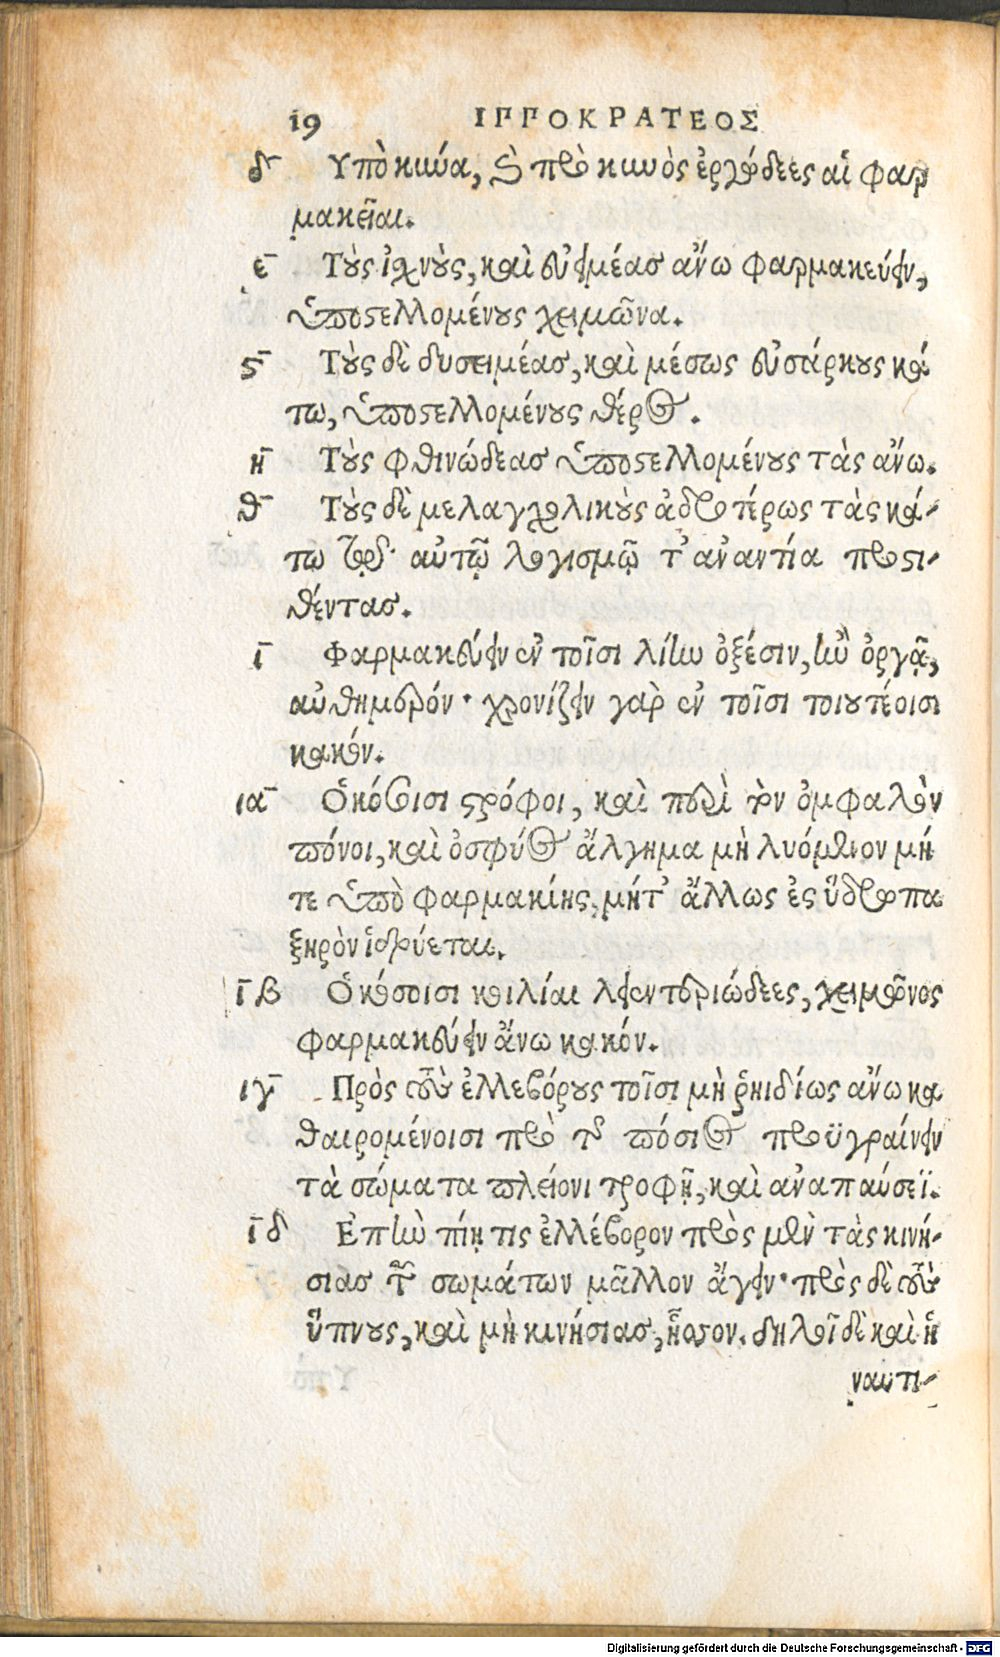 19 ΙΠΠΟΚΡΑΤΕΟΣ
δ Υπὸ κιωύα, ϗ πρὸ κιωὸς ἐργώδεες αἱ φαρ
μακεῖαι.
ε Τοὺς ἰχνοὺς, καὶ εὐημέας ἄνω φαρμακεύειν,
ὑποστελλομένους χειμῶνα.
ϛ Τοὺς δὲ δυσημέας, καὶ μέσως εὐσάρκους κά
τω, ὑποστελλομένους θέρος.
η Τοὺς φθινώδεας ὑποστελλομένους τὰς ἄνω.
θ Τοὺς δὲ μελαγχολικοὺς ἁδροτέρως τὰς κά-
τω αὐτῷ λογισμῷ τ' ἀναντία προστι-
θέντας.
ι Φαρμακεύειν ἐν τοῖσι λίην ὀξέσιν, ἢν ὀργᾷ,
αὐθημερόν· χρονίζειν γὰρ ἐν τοῖσι τοιουτέοισι
κακόν.
ια Ὁκόσοισι στρόφοι, καὶ περὶ τὸν ὀμφαλὸν
πόνοι, καὶ ὀσφύος ἄλγημα μὴ λυόμενον μή
τε ὑπὸ φαρμακίης, μήτ' ἄλλως ἐς ὕδρωπα
ξηρὸν ἱδρύεται.
ιβ Ὁκόσοισι κοιλίαι λειεντεριώδεες, χειμῶνος
φαρμακεύειν ἄνω κακόν.
ιγ Πρὸς τοὺς ἐλλεβόρους τοῖσι μὴ ῥηιδίως ἄνω κα
θαιρομένοισι πρὸ τῆς πόσιος προϋγραίνειν
τὰ σώματα πλείονι τροφῇ, καὶ ἀναπαύσεϊ.
ιδ Ἐπὴν πίῃ τις ἐλλέβορον πρὸς μὲν τὰς κινή-
σιας τῶν σωμάτων μᾶλλον ἄγειν· πρὸς δὲ τοὺς
ὕπνους, καὶ μὴ κινήσιας, ἧσσον. δηλοῖ δὲ καὶ ἡ
ναυτι-
Digitalisierung gefördert durch die Deutsche Forschungsgemeinschaft - DFG